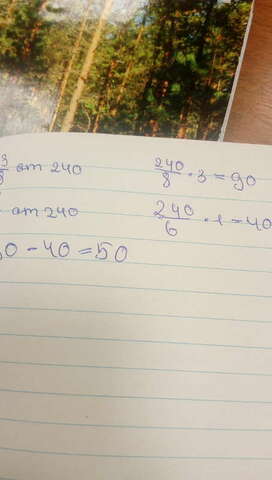 3/8 от 240 240/8 · 3 = 90
от 240 240/6 · 1 = 40
0 - 40 = 50